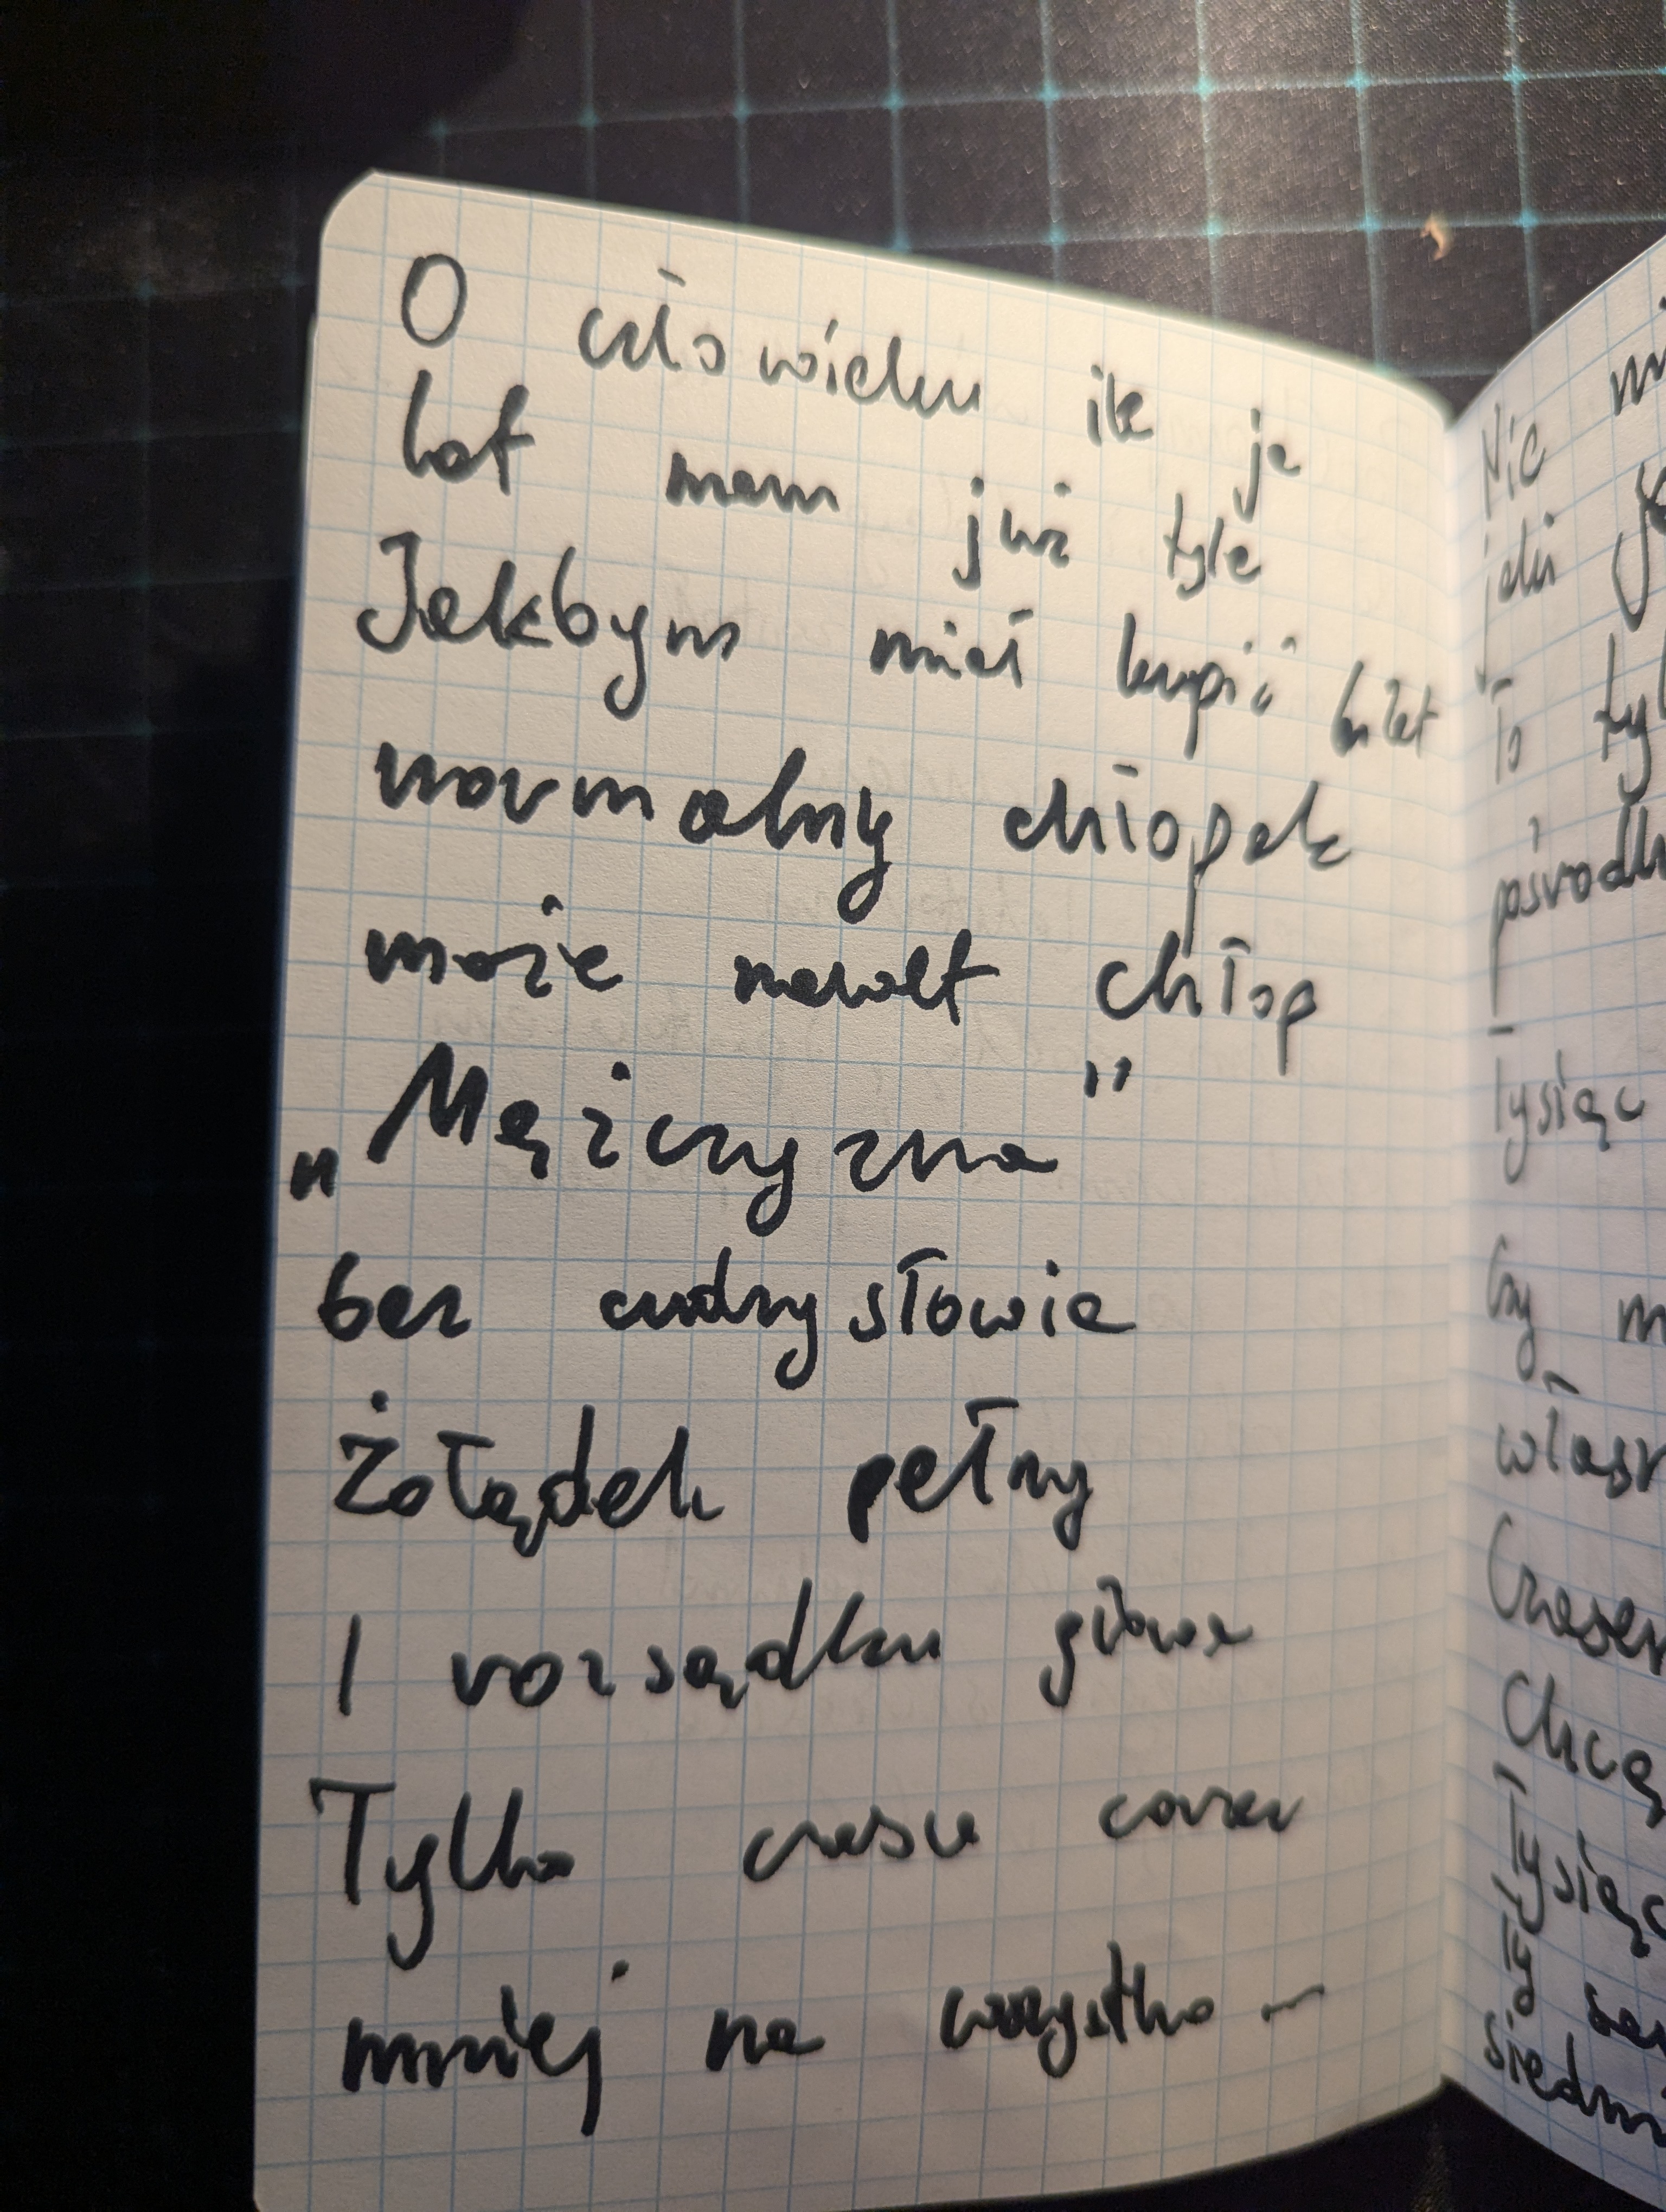 O człowieku ile ja
lat mam już tyle
Jakbym miał kupić bilet
normalny chłopak
może nawet chłop
„Mężczyzna"
bez cudzysłowie
Żołądek pełny
I rozsądku głowa
Tylko czasu coraz
mniej na wszystko –
Nic
To
pośrodk
Tysiąc
Czy m
własn
Czasem
Chcę
Tysiąc
Ty
siedm